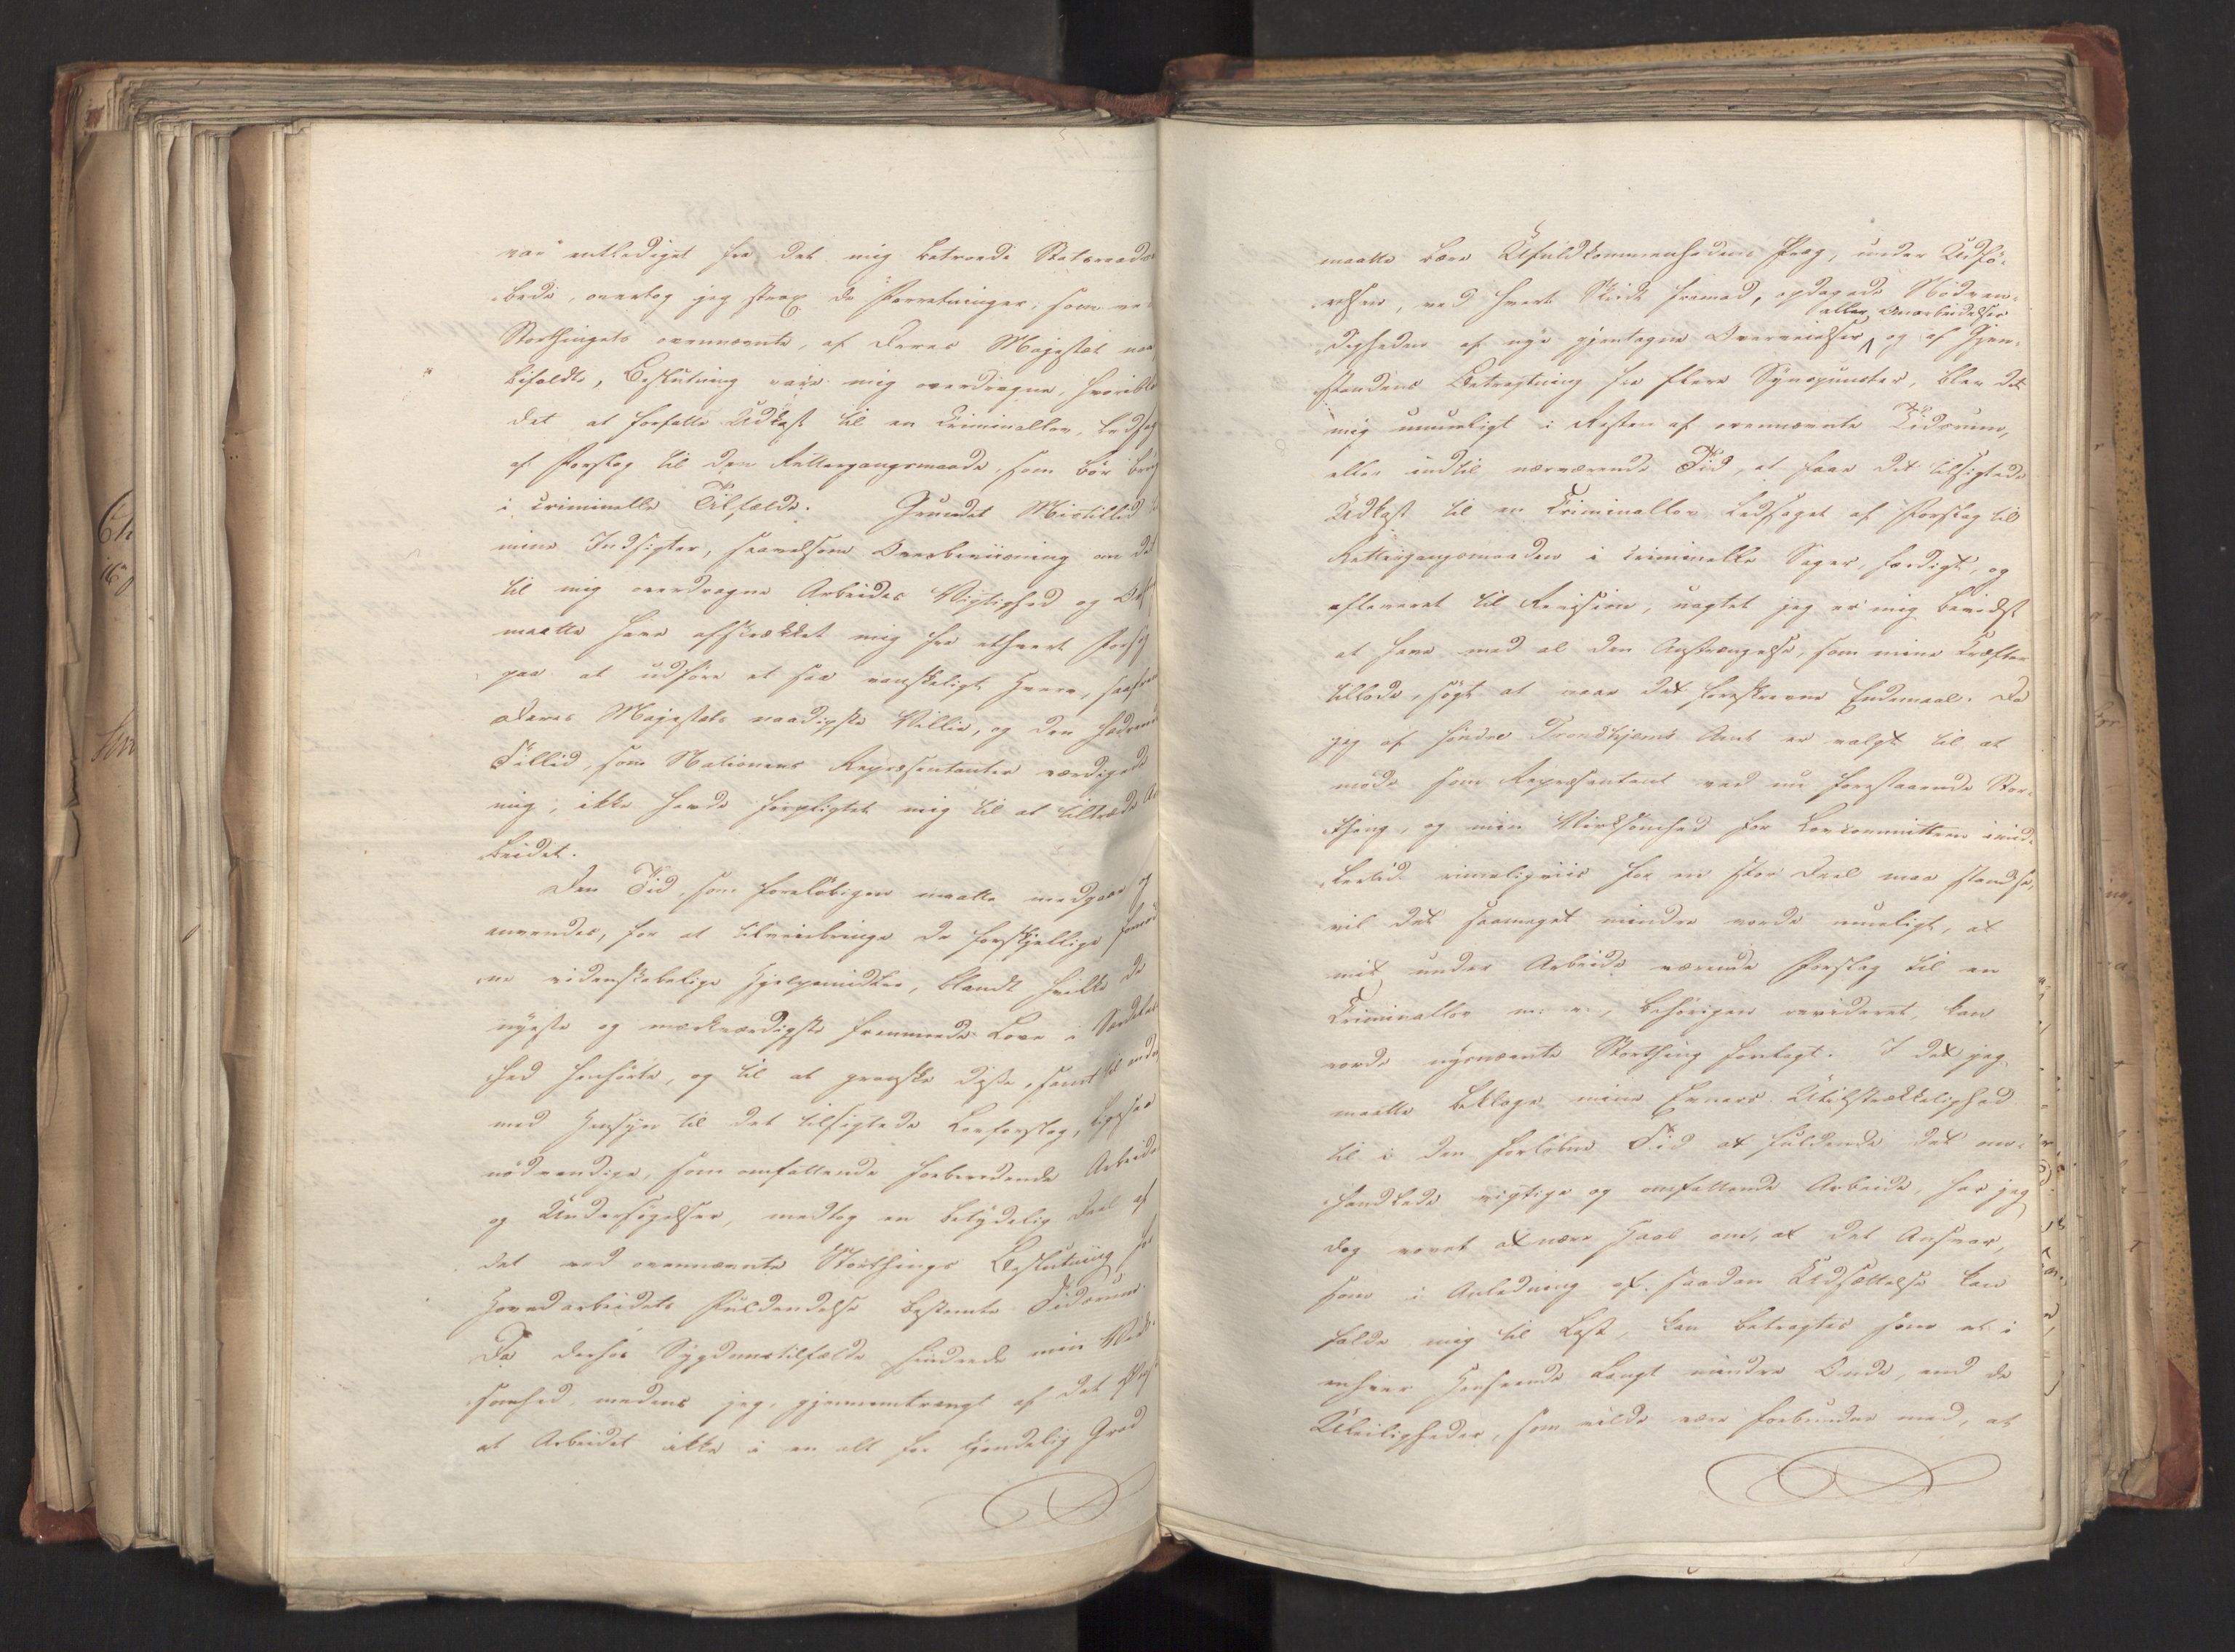 var entlediget fra det mig betroede Statsraads
Embede, overtog jeg strax de Forretninger, som ved
Storthingets ovennævnte, af Deres Majestæt naa
bifaldte, Beslutning vare mig overdragne, hvoriblandt
det at forfatte Udkast til en Criminallov, ledsaget
af Forslag til den Rettergangsmaade, som bør brug
i criminelle Tilfælde. Grundet Mistillid til
mine Indsigter, saavelsom Overbeviisning om det
til mig overdragne Arbeides Vigtighed og
maatte have afskrækket mig fra ethvert Forsøg
paa at udføre et saa vanskeligt Hverv, saafremt
Deres Majestæts naadigste Villie, og den hædrende
Tillid, som Nationens Repræsentanter værdigede
mig, ikke havde forpligtet mig til at tiltræde Ar
beidet.
Den Tid, som foreløbigen maatte medgaae og
anvendes, for at tilveiebringe de forskjellige fornød
ne videnskabelige Hjelpemidler, blandt hvilke de
nyeste og mærkværdigste fremmede Love i Særdeles
hed henhørte, og til at granske disse, samt til andre
med Hensyn til det tilsigtede Lovforslag, ligesaa
nødvendige, som omfattende forberedende Arbeider
og Undersøgelser, medtog en betydelig Deel af
det ved ovennævnte Storthings Beslutning for
Hovedarbeidets Fuldendelse bestemte Tidsrum.
Da derhos Sygdomstilfælde hindrede min Virk-
somhed, medens jeg, gjennemtrængt af det Ønske
at Arbeidet ikke i en alt for kjendelig Grad
maatte bære Ufuldkommenhedens Præg, under Udfø-
relsen, ved hvert Skridt fremad, opdagede Nødven-
eller Omarbeidelser
digheden af nye gjentagne Overveielser, og af Gjen-
standens Betragtning fra flere Synspuncter, blev det
mig umueligt i Resten af ovennævnte Tidsrum,
eller indtil nærværende Tid, at faae det tilsigtede
Udkast til en Criminallov ledsaget af Forslag til
Rettergangsmaaden i criminelle Sager, færdigt, og
afleveret til Revision, uagtet jeg er mig bevidst
at have med al den Anstrængelse, som mine Kræfter
tillode, søgt at naae det foreskrevne Endemaal. Da
jeg af søndre Trondhjems Amt er valgt til at
møde som Repræsentant ved nu forestaaende Stor-
thing, og min Virksomhed for Lovcommitteen imid-
lertid rimeligviis for en stor Deel maa standse,
vil det saameget mindre vorde mueligt, at
mit under Arbeide værende Forslag til en
Criminallov m: v:, behørigen revideret, kan
vorde nysnævnte Storthing forelagt. I det jeg
maatte beklage mine Evners Utilstrækkelighed
til i den forløbne Tid at fuldende det om-
handlede vigtige og omfattende Arbeide, har jeg
dog vovet at nære Haab om, at det Ansvar,
som i Anledning af saadan Udsættelse kan
falde mig til Last, kan betragtes som et i
enhver Henseende langt mindre Onde, end de
Uleiligheder, som vilde være forbundne med, at